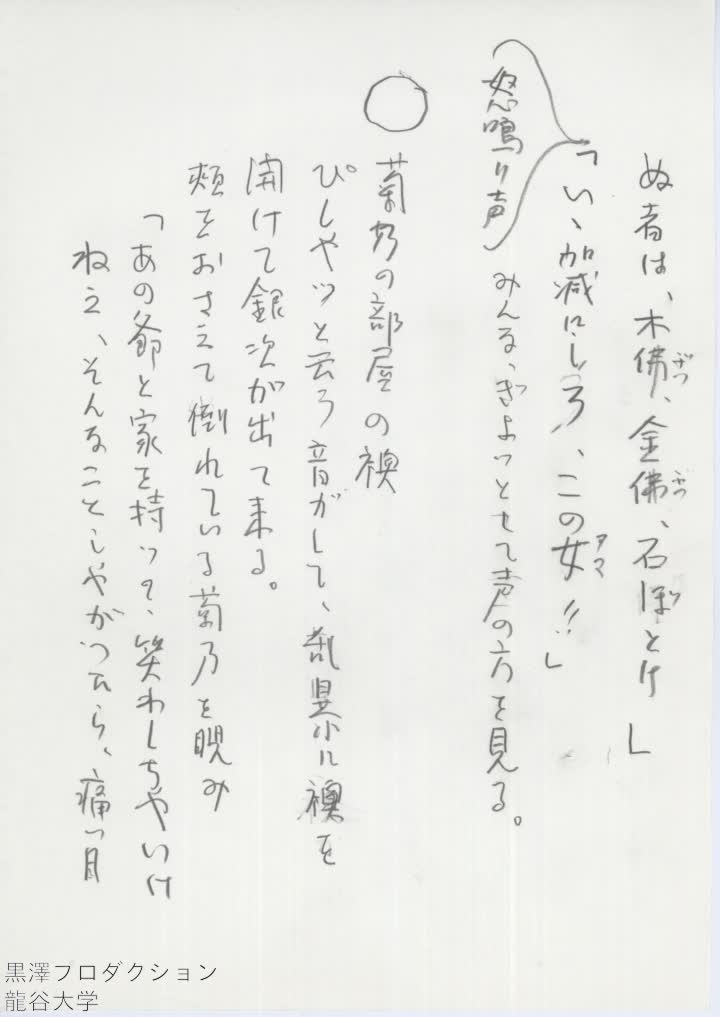 ぬ者は、木佛、金佛、石ぼとけ」
「いゝ加減にしろ、この女!!」
怒鳴り声 みんな、ぎょっとして声の方を見る。
○ 菊乃の部屋の襖
ぴしゃッと云う音がして、乱暴に襖を
開けて銀次が出て来る。
頬をおさえて倒れている菊乃を睨み
「あの爺と家を持つて、笑わしちゃいけ
ねえ、そんなことしやがつたら、痛い目
黒澤プロダクション
龍谷大学